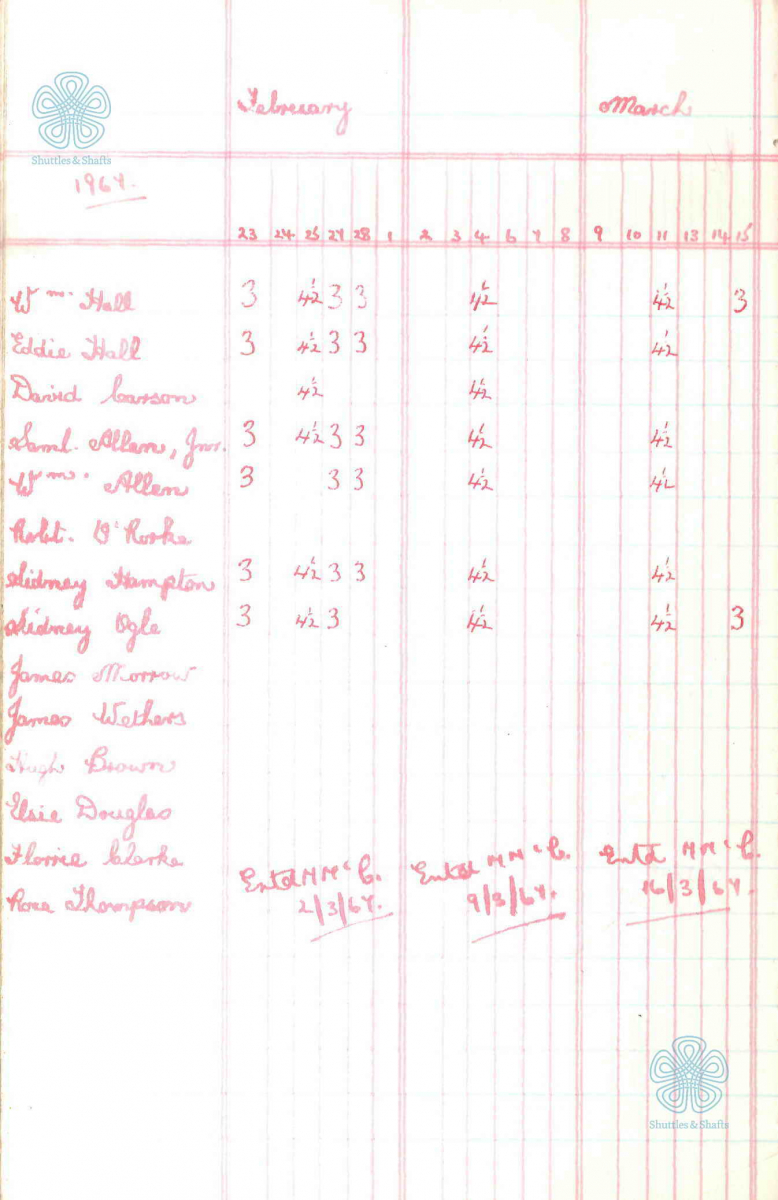 Shuttles & Shafts
February March
1967.
23 24 25 27 28 1 2 3 4 6 7 8 9 10 11 13 14 15
Wm. Hall 3 4½ 3 3 4½ 4½ 3
Eddie Hall 3 4½ 3 3 4½ 4½
David Carson 4½ 4½
Saml. Allen, Jnr. 3 4½ 3 3 4½ 4½
Wm. Allen 3 3 3 4½ 4½
Robt. O'Rorke
Sidney Hampton 3 4½ 3 3 4½ 4½
Sidney Ogle 3 4½ 3 4½ 4½ 3
James Morrow
James Wethers
Hugh Brown
Elsie Douglas
Florrie Clarke Entd M McC. Entd M McC. Entd M McC.
Rosa Thompson 2/3/67. 9/3/67. 16/3/67.
Shuttles & Shafts